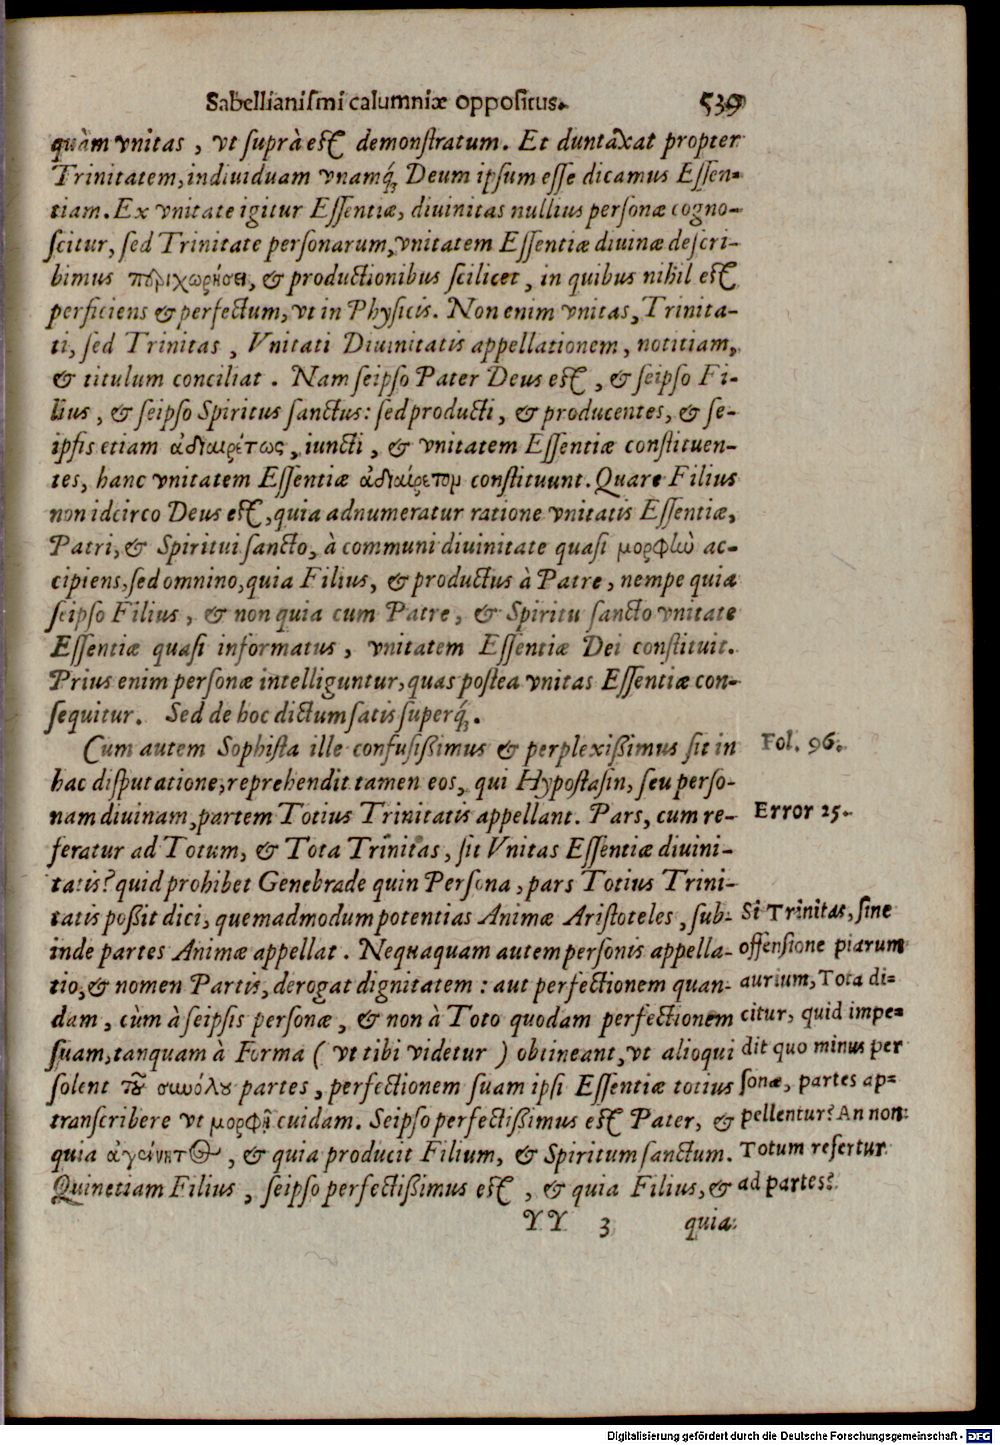 Sabellianismi calumniæ oppositus. 539
quàm vnitas, vt suprà est demonstratum. Et duntaxat propter
Trinitatem, indiuiduam vnamq́; Deum ipsum esse dicamus Essen-
tiam. Ex vnitate igitur Essentiæ, diuinitas nullius personæ cogno-
scitur, sed Trinitate personarum, vnitatem Essentiæ diuinæ descri-
bimus περιχωρήσει, & productionibus scilicet, in quibus nihil est
perficiens & perfectum, vt in Physicis. Non enim vnitas, Trinita-
ti, sed Trinitas, Vnitati Diuinitatis appellationem, notitiam,
& titulum conciliat. Nam seipso Pater Deus est, & seipso Fi-
lius, & seipso Spiritus sanctus: sed producti, & producentes, & se-
ipsis etiam ἀδιαιρέτως, iuncti, & vnitatem Essentiæ constituen-
tes, hanc vnitatem Essentiæ ἀδιαίρετον constituunt. Quare Filius
non idcirco Deus est, quia adnumeratur ratione vnitatis Essentiæ,
Patri, & Spiritui sancto, à communi diuinitate quasi μορφὴν ac-
cipiens, sed omnino, quia Filius, & productus à Patre, nempe quia
seipso Filius, & non quia cum Patre, & Spiritu sancto vnitate
Essentiæ quasi informatus, vnitatem Essentiæ Dei constituit.
Prius enim personæ intelliguntur, quas postea vnitas Essentiæ con-
sequitur. Sed de hoc dictum satis superq́;.
Cùm autem Sophista ille confusißimus & perplexißimus sit in
hac disputatione, reprehendit tamen eos, qui Hypostasin, seu perso-
nam diuinam, partem Totius Trinitatis appellant. Pars, cum re-
feratur ad Totum, & Tota Trinitas, sit Vnitas Essentiæ diuini-
tatis? quid prohibet Genebrade quin Persona, pars Totius Trini-
tatis poßit dici, quemadmodum potentias Animæ Aristoteles, sub-
inde partes Animæ appellat. Nequaquam autem personis appella-
tio, & nomen Partis, derogat dignitatem: aut perfectionem quan-
dam, cùm à seipsis personæ, & non à Toto quodam perfectionem
suam, tanquam à Forma (vt tibi videtur) obtineant, vt alioqui
solent τοῦ συνόλου partes, perfectionem suam ipsi Essentiæ totius
transcribere vt μορφῇ cuidam. Seipso perfectißimus est Pater, &
quia ἀγέννητος, & quia producit Filium, & Spiritum sanctum.
Quinetiam Filius, seipso perfectißimus est, & quia Filius, &
YY 3 quia
Fol. 96.
Error 25.
Si Trinitas, sine
offensione piarum
aurium, Tota di-
citur, quid impe-
dit quo minus per
sonæ, partes ap-
pellentur? An non
Totum refertur
ad partes?
Digitalisierung gefördert durch die Deutsche Forschungsgemeinschaft - DFG